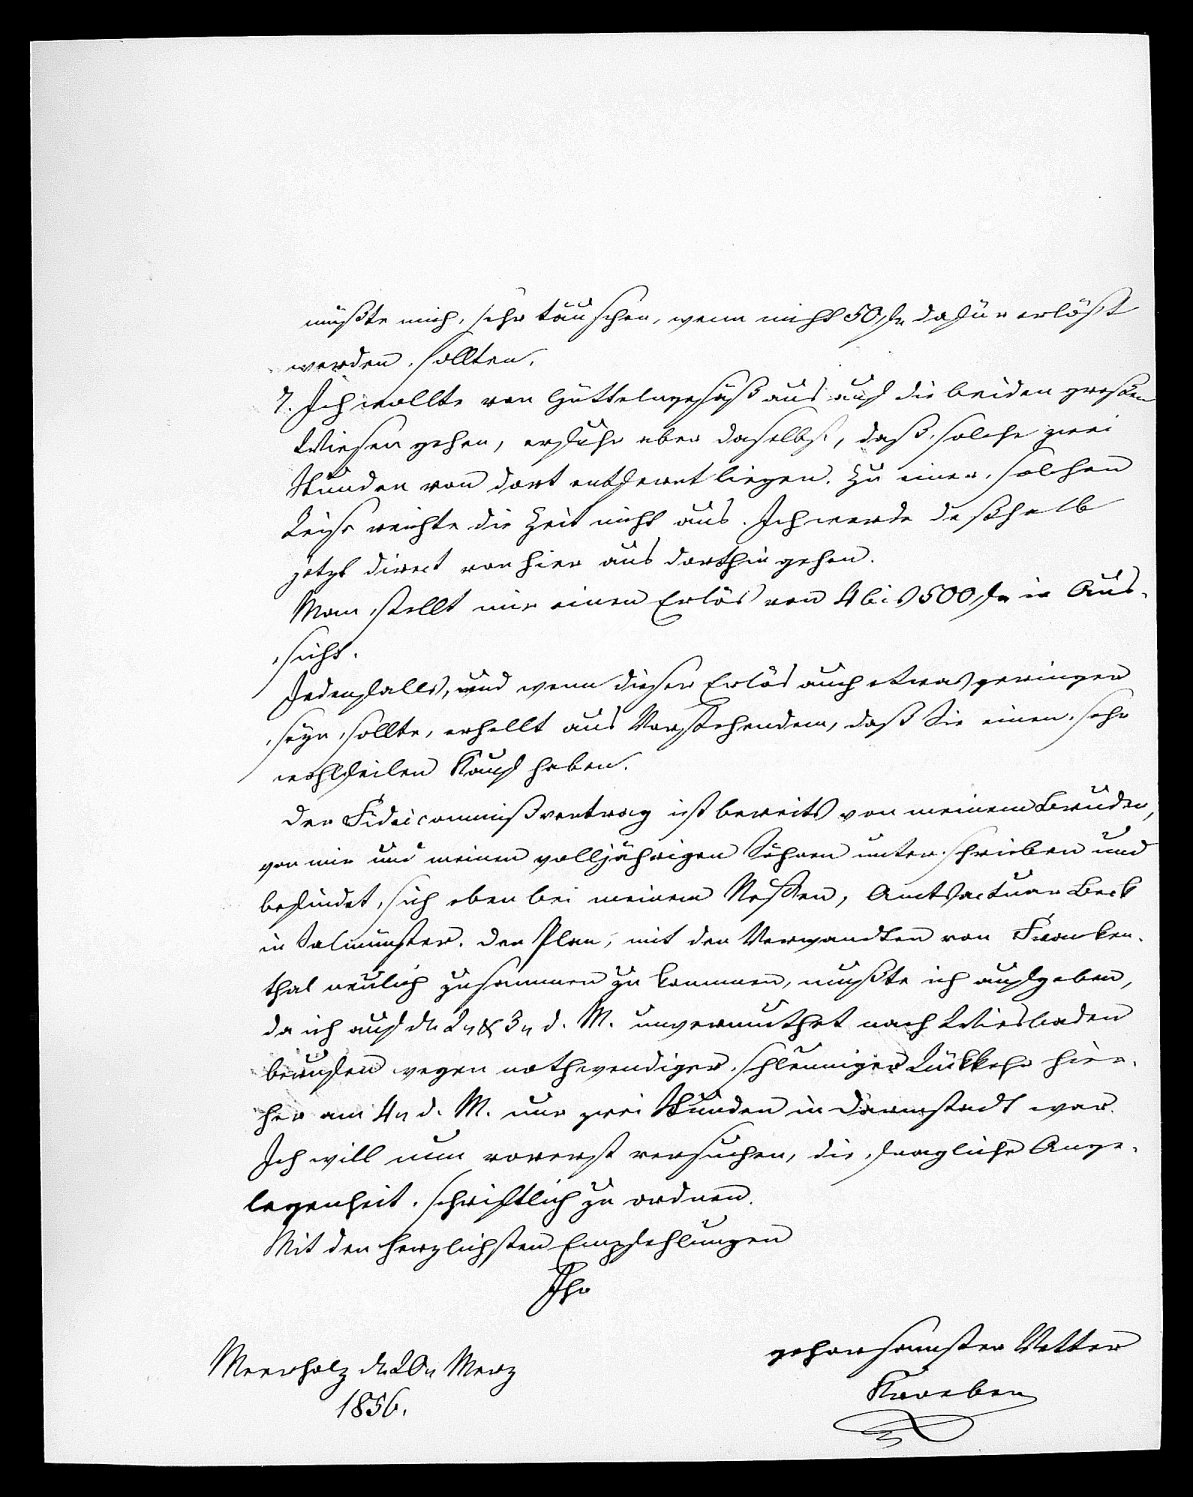 müßte mich sehr täuschen, wenn nicht 50 fr dafür erlößt
werden sollten.
7. Ich wollte von Hüttelngesäß aus auf die beiden großen
Wiesen gehen, erfuhr aber daselbst, daß solche zwei
Stunden von dort entfernt liegen. Zu einer solchen
Reise reichte die Zeit nicht aus. Ich werde deßhalb
jetzt direct von hier aus dorthin gehen.
Man stellt mir einen Erlös von 4 bis 500 fr in Aus-
sicht.
Jedenfalls, und wenn dieser Erlös auch etwas geringer
seyn sollte, erhellt aus Vorstehendem, daß Sie einen sehr
wohlfeilen Kauf haben.
Der Fideicommißvertrag ist bereits von meinem Bruder,
von mir und meinen volljährigen Söhnen unterschrieben und
befindet sich eben bei meinem Neffen, Amtsactuar Beck
in Salmünster. Den Plan, mit den Verwandten von Franken-
thal neulich zusammen zu kommen, mußte ich aufgeben,
da ich auf dn 2n & 3n d. M. unvermuthet nach Wiesbaden
berufen wegen nothwendiger schleuniger Rückkehr hier-
her am 4n d. M. nur zwei Stunden in Darmstadt war.
Ich will nun vorerst versuchen, die fragliche Ange-
legenheit schriftlich zu ordnen.
Mit den herzlichsten Empfehlungen
Ihr
gehorsamster Vetter
Meerholz dn 20n Merz
1856.